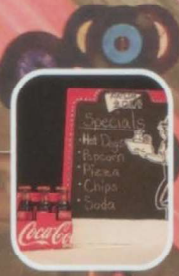 Specials
• Hot Dogs
• Popcorn
• Pizza
• Chips
• Soda
Coca-Cola